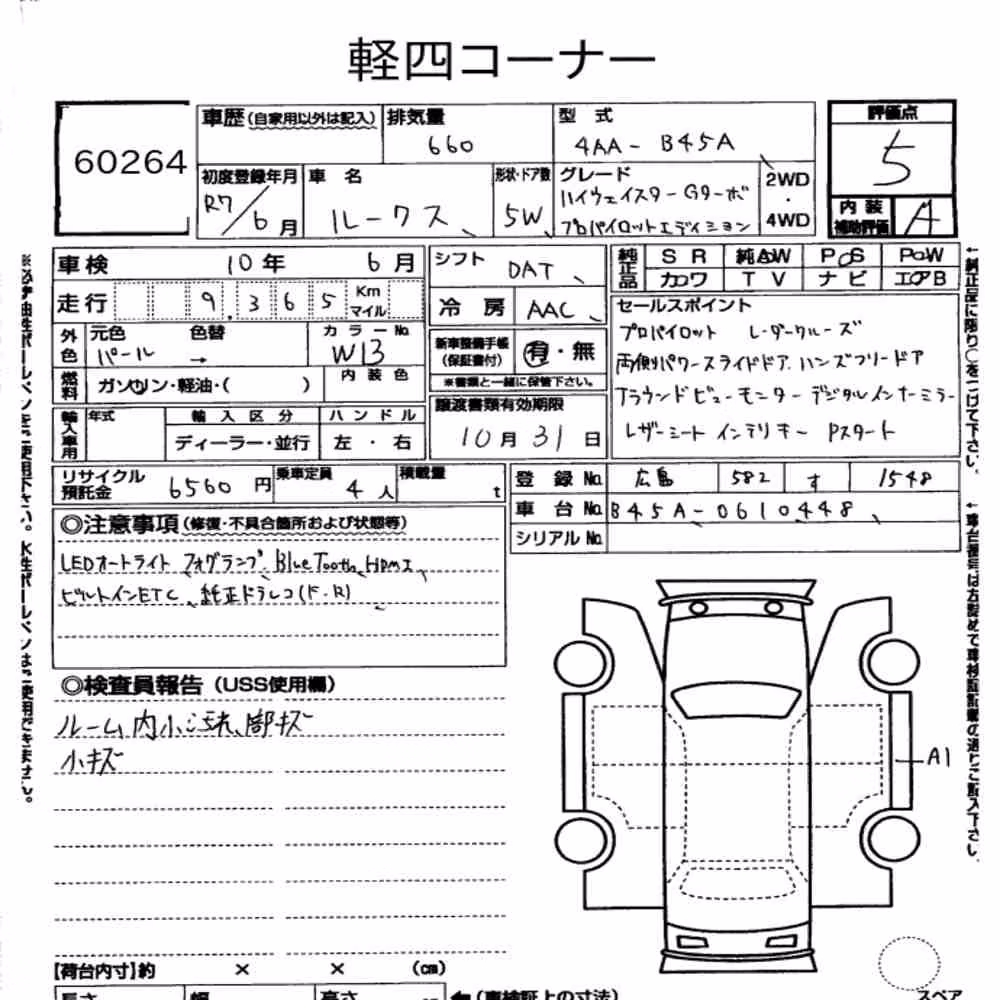 軽四コーナー
60264
車歴(自家用以外は記入)
排気量
660
型 式
4AA- B45A
評価点
5
初度登録年月
R7/6月
車 名
ルークス
形状・ドア数
5W
グレード
ハイウェイスターGターボ
プロパイロットエディション
2WD
・
4WD
内 装
補助評価
A
車検 10年 6月
シフト DAT
純正品
SR 純AW PS PW
カワ TV ナビ エアB
走行 9,365 Km マイル
冷 房 AAC
セールスポイント
プロパイロット レーダークルーズ
両側パワースライドドア ハンズフリードア
アラウンドビューモニター デジタルインナーミラー
レザーシート インテリキー Pスタート
外色
元色 パール
色替 →
カラーNo. W13
新車整備手帳
(保証書付)
有・無
※書類と一緒に保管下さい。
燃料
ガソリン・軽油・( )
内 装 色
輸入車用
年式
輸 入 区 分
ハ ン ド ル
ディーラー・並行
左 ・ 右
譲渡書類有効期限
10月31日
リサイクル
預託金
6560円
乗車定員
4人
積載量
t
登 録 No. 広島 582 す 1548
車 台 No. B45A-0610448
シリアルNo.
◎注意事項(修復・不具合箇所および状態等)
LEDオートライト フォグランプ BlueTooth HDMI
ビルトインETC 純正ドラレコ(F.R)
◎検査員報告(USS使用欄)
ルーム内小汚れ、部キズ
小キズ
A1
【荷台内寸】約 × × (cm)
長さ
幅
高さ
cm
(車検証上の寸法)
スペア
※必ず油性ボールペンをご使用下さい。水性ボールペンはご使用できません。
←純正品に限り○をつけて下さい。
←車台番号は左詰めで車検証記載の通りご記入下さい。